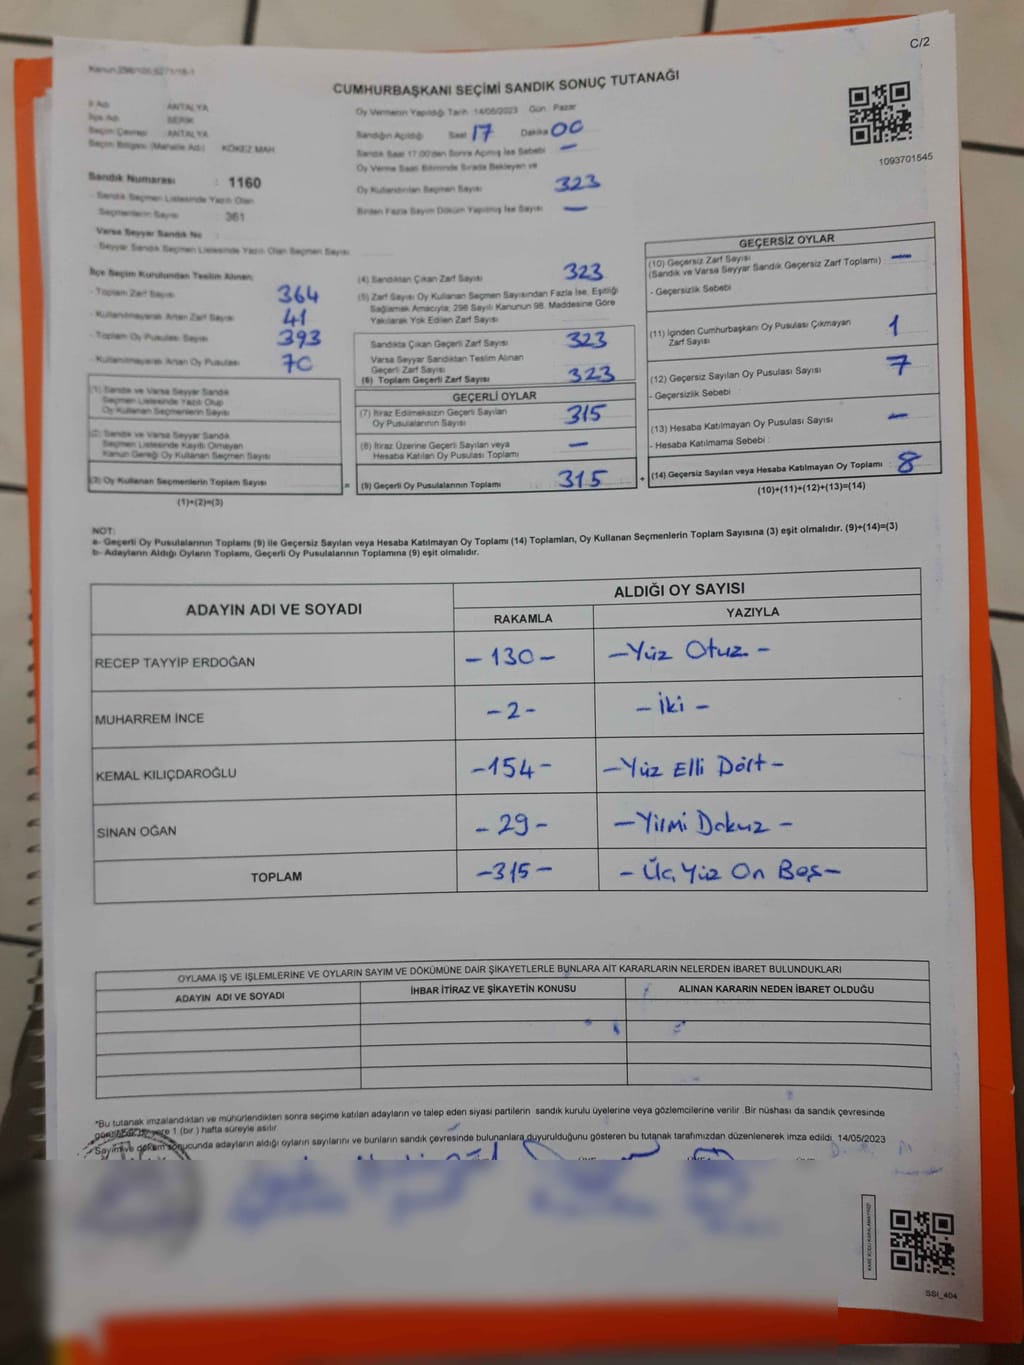 C/2
Kanun:298/105,6271/18-1
CUMHURBAŞKANI SEÇİMİ SANDIK SONUÇ TUTANAĞI
İl Adı : ANTALYA
İlçe Adı : SERİK
Seçim Çevresi : ANTALYA
Seçim Bölgesi (Mahalle Adı) : KÖKEZ MAH.
Sandık Numarası : 1160
- Sandık Seçmen Listesinde Yazılı Olan
Seçmenlerin Sayısı : 361
Varsa Seyyar Sandık No :
- Seyyar Sandık Seçmen Listesinde Yazılı Olan Seçmen Sayısı :
Oy Vermenin Yapıldığı Tarih : 14/05/2023 Gün : Pazar
Sandığın Açıldığı Saat 17 Dakika 00
Sandık Saat 17:00'den Sonra Açılmış İse Sebebi : —
Oy Verme Saati Bitiminde Sırada Bekleyen ve
Oy Kullandırılan Seçmen Sayısı : 323
Birden Fazla Sayım Döküm Yapılmış İse Sayısı : —
1093701545
İlçe Seçim Kurulundan Teslim Alınan:
- Toplam Zarf Sayısı : 364
- Kullanılmayarak Artan Zarf Sayısı : 41
- Toplam Oy Pusulası Sayısı : 393
- Kullanılmayarak Artan Oy Pusulası : 70
(1) Sandık ve Varsa Seyyar Sandık
Seçmen Listesinde Yazılı Olup
Oy Kullanan Seçmenlerin Sayısı :
(2) Sandık ve Varsa Seyyar Sandık
Seçmen Listesinde Kayıtlı Olmayan
Kanun Gereği Oy Kullanan Seçmen Sayısı :
(3) Oy Kullanan Seçmenlerin Toplam Sayısı :
(1)+(2)=(3)
(4) Sandıktan Çıkan Zarf Sayısı : 323
(5) Zarf Sayısı Oy Kullanan Seçmen Sayısından Fazla İse, Eşitliği
Sağlamak Amacıyla; 298 Sayılı Kanunun 98. Maddesine Göre
Yakılarak Yok Edilen Zarf Sayısı :
Sandıkta Çıkan Geçerli Zarf Sayısı : 323
Varsa Seyyar Sandıktan Teslim Alınan
Geçerli Zarf Sayısı :
(6) Toplam Geçerli Zarf Sayısı : 323
GEÇERLİ OYLAR
(7) İtiraz Edilmeksizin Geçerli Sayılan
Oy Pusulalarının Sayısı : 315
(8) İtiraz Üzerine Geçerli Sayılan veya
Hesaba Katılan Oy Pusulası Toplamı : —
= (9) Geçerli Oy Pusulalarının Toplamı : 315 +
GEÇERSİZ OYLAR
(10) Geçersiz Zarf Sayısı
(Sandık ve Varsa Seyyar Sandık Geçersiz Zarf Toplamı) : —
- Geçersizlik Sebebi :
(11) İçinden Cumhurbaşkanı Oy Pusulası Çıkmayan
Zarf Sayısı : 1
(12) Geçersiz Sayılan Oy Pusulası Sayısı : 7
- Geçersizlik Sebebi :
(13) Hesaba Katılmayan Oy Pusulası Sayısı : —
- Hesaba Katılmama Sebebi :
(14) Geçersiz Sayılan veya Hesaba Katılmayan Oy Toplamı : 8
(10)+(11)+(12)+(13)=(14)
NOT:
a- Geçerli Oy Pusulalarının Toplamı (9) ile Geçersiz Sayılan veya Hesaba Katılmayan Oy Toplamı (14) Toplamları, Oy Kullanan Seçmenlerin Toplam Sayısına (3) eşit olmalıdır. (9)+(14)=(3)
b- Adayların Aldığı Oyların Toplamı, Geçerli Oy Pusulalarının Toplamına (9) eşit olmalıdır.
ADAYIN ADI VE SOYADI ALDIĞI OY SAYISI
RAKAMLA YAZIYLA
RECEP TAYYİP ERDOĞAN -130- -Yüz Otuz-
MUHARREM İNCE -2- -İki-
KEMAL KILIÇDAROĞLU -154- -Yüz Elli Dört-
SİNAN OĞAN -29- -Yirmi Dokuz-
TOPLAM -315- -Üç Yüz On Beş-
OYLAMA İŞ VE İŞLEMLERİNE VE OYLARIN SAYIM VE DÖKÜMÜNE DAİR ŞİKAYETLERLE BUNLARA AİT KARARLARIN NELERDEN İBARET BULUNDUKLARI
ADAYIN ADI VE SOYADI İHBAR İTİRAZ VE ŞİKAYETİN KONUSU ALINAN KARARIN NEDEN İBARET OLDUĞU
*Bu tutanak imzalandıktan ve mühürlendikten sonra seçime katılan adayların ve talep eden siyasi partilerin sandık kurulu üyelerine veya gözlemcilerine verilir .Bir nüshası da sandık çevresinde
yere 1 (bir ) hafta süreyle asılır.
Sayım ve döküm sonucunda adayların aldığı oyların sayılarını ve bunların sandık çevresinde bulunanlara duyurulduğunu gösteren bu tutanak tarafımızdan düzenlenerek imza edildi. 14/05/2023
SSİ_404